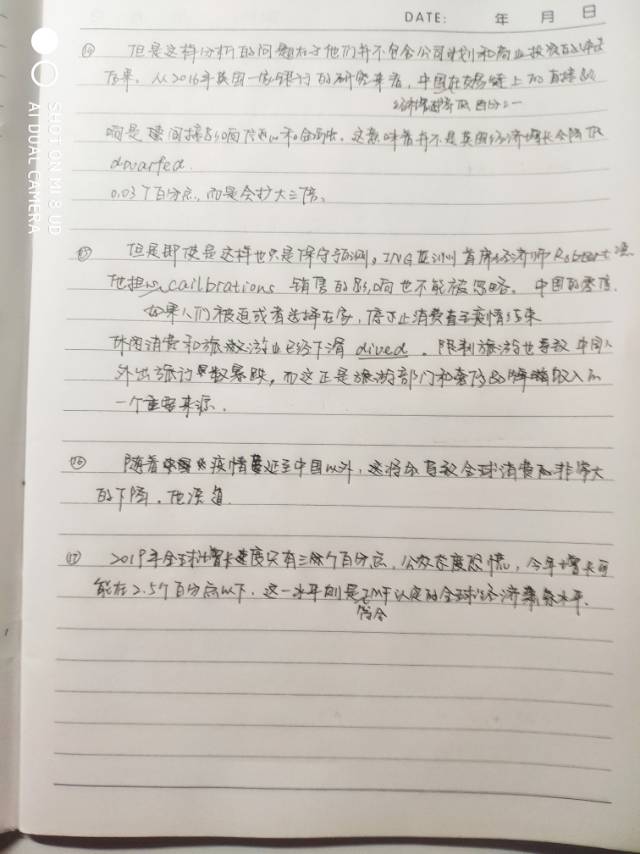 DATE: 年 月 日
⑭ 但是这样分析的问题在于他们并不包含公司计划和商业投资的
后果。从2016年英国一家银行的研究来看,中国在贸易链上的直接影
经济增速降低百分之一
响是 间接影响 和 。这意味着并不是英国经济增长会降低
dwarfed
0.03个百分点,而是会扩大三倍。
⑮ 但是即使是这样也只是保守预测。ING亚洲首席经济师Robert
他担心cailbrations 销售的影响也不能被忽略。中国的零售
如果人们被迫或者选择在家,停止消费直至疫情结束
休闲消费和旅游业已经下滑 dived。限制旅游也导致中国人
外出旅行 暴跌,而这正是旅游部门和奢侈品 收入的
一个重要来源.
⑯ 随着 疫情 延至中国以外,这将 导致全球消费 非常大
的下降,他深
⑰ 2019年全球增长速度只有 个百分点,公众态度恐慌,今年增长可
能在2.5个百分点以下,这一水平则是IMF认定的全球经济 水平.
符合
SHOT ON MI 8 UD
AI DUAL CAMERA